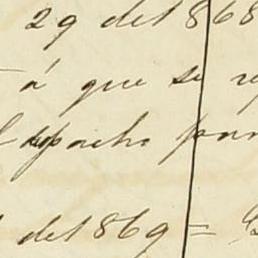 29 del 868
á que se re
despacho para
del 869 =